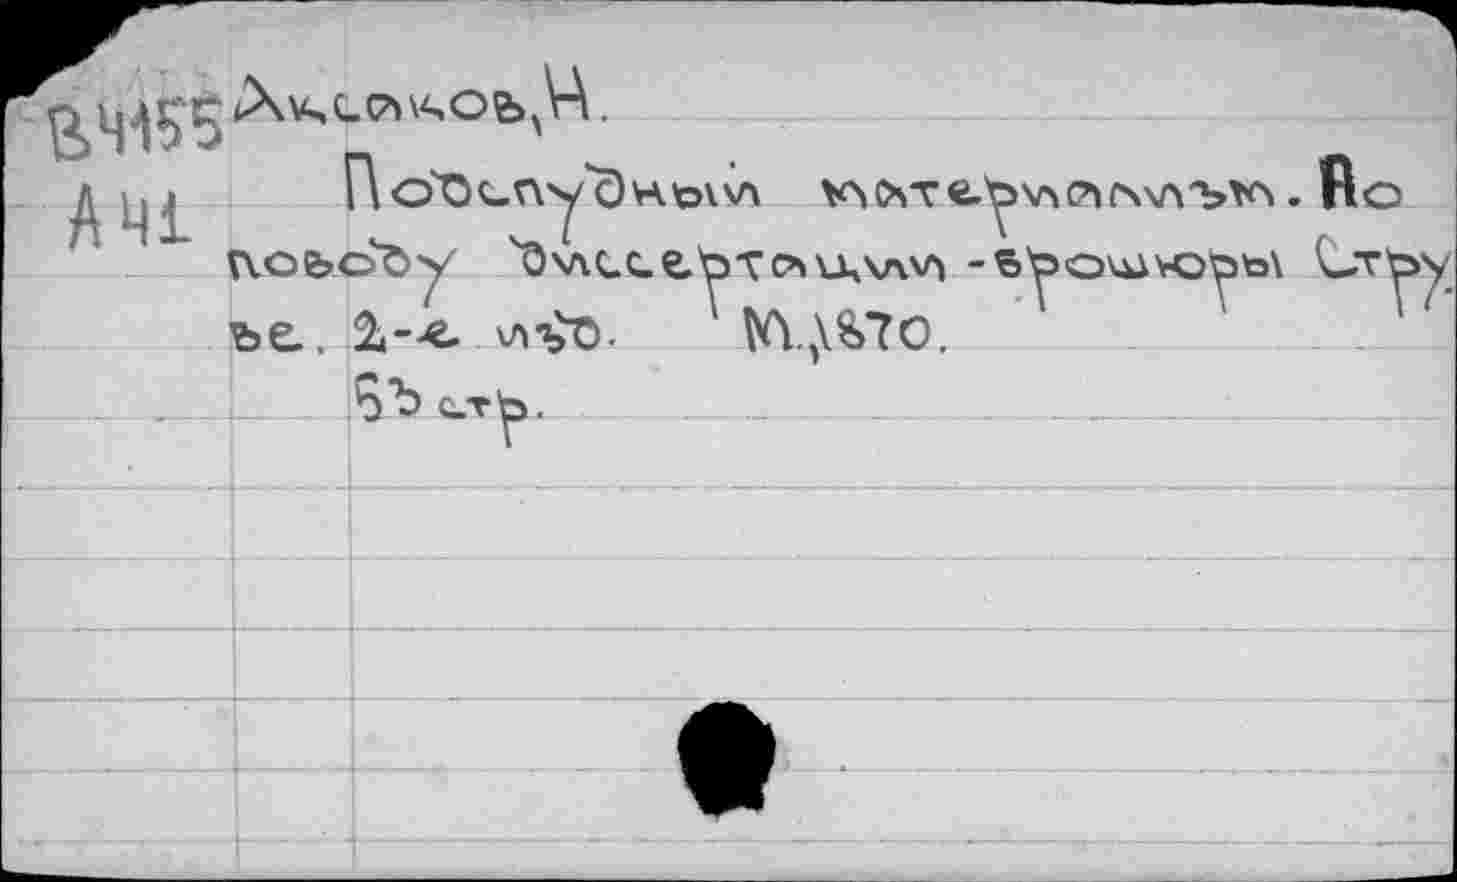 В4155 Аксаков, Н.
А41 Подспудный материализм. По
поводу диссертации-брошюры Стру.
ве. 2-е изд. М., 1870.
53 стр.